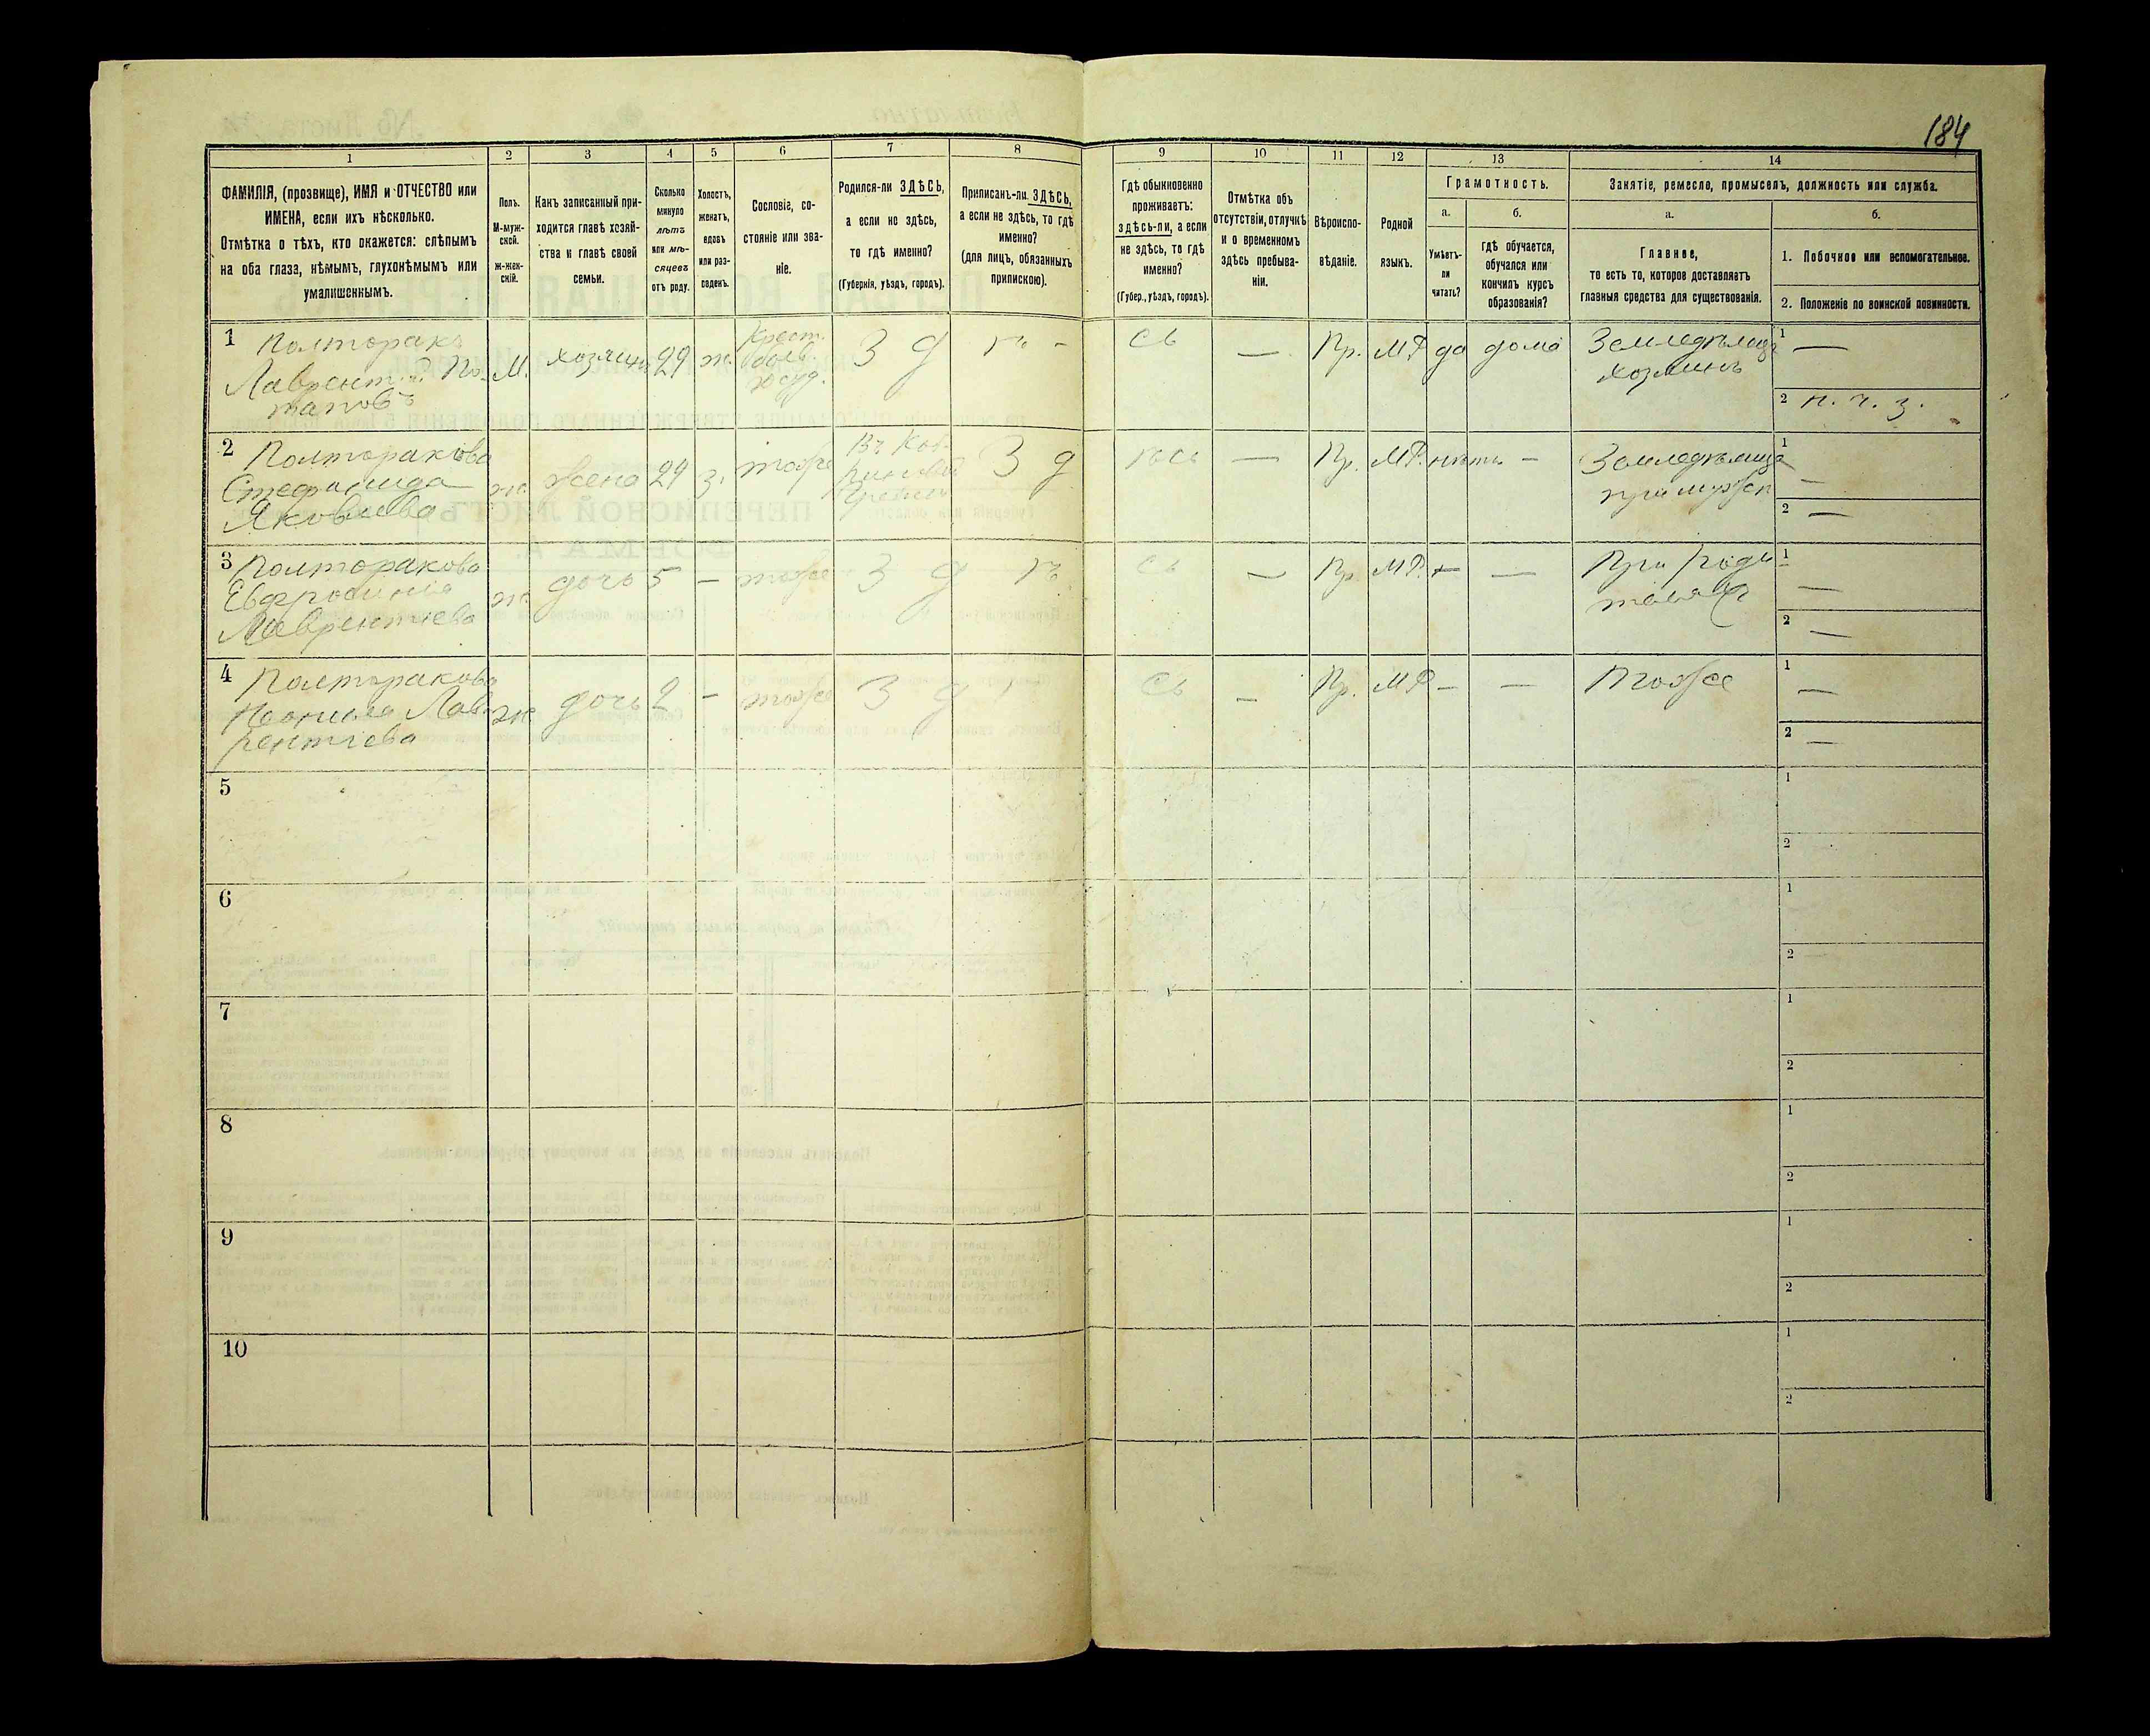 184
1 2 3 4 5 6 7 8 9 10 11 12 13 14
ФАМИЛІЯ, (прозвище), ИМЯ и ОТЧЕСТВО или
ИМЕНА, если ихъ нѣсколько.
Отмѣтка о тѣхъ, кто окажется: слѣпымъ
на оба глаза, нѣмымъ, глухонѣмымъ или
умалишеннымъ.
Полъ.
М-муж-
ской.
Ж-жен-
скій.
Какъ записанный при-
ходится главѣ хозяй-
ства и главѣ своей
семьи.
Сколько
минуло
лѣтъ
или мѣ-
сяцевъ
отъ роду.
Холостъ,
женатъ,
вдовъ
или раз-
веденъ.
Сословіе, со-
стояніе или зва-
ніе.
Родился-ли ЗДѢСЬ,
а если не здѣсь,
то гдѣ именно?
(Губернія, уѣздъ, городъ).
Приписанъ-ли ЗДѢСЬ,
а если не здѣсь, то гдѣ
именно?
(для лицъ, обязанныхъ
припискою).
Гдѣ обыкновенно
проживаетъ:
здѣсь-ли, а если
не здѣсь, то гдѣ
именно?
(Губер., уѣздъ, городъ).
Отмѣтка объ
отсутствіи, отлучкѣ
и о временномъ
здѣсь пребыва-
ніи.
Вѣроиспо-
вѣданіе.
Родной
языкъ.
Грамотность.
а.
Умѣетъ-
ли
читать?
б.
гдѣ обучается,
обучался или
кончилъ курсъ
образованія?
Занятіе, ремесло, промыселъ, должность или служба.
а.
Главное,
то есть то, которое доставляетъ
главныя средства для существованія.
б.
1. Побочное или вспомогательное.
2. Положеніе по воинской повинности.
1 Полторакъ
Лаврентій По-
таповъ
М. хозяинъ 29 ж.
Крест.
З д ѣ - сь — Пр. МР да дома
Земледѣлецъ
хозяинъ
1 —
2 н. ч. з.
2 Полторакова
Стефанида
Яковлева
ж жена 29 з. тоже
З д ѣсь — Пр. МР. нѣтъ —
Земледѣлица
при мужѣ
1 —
2 —
3 Полторакова
Евфросинія
Лаврентіева
ж дочь 5 — тоже З д ѣ сь — Пр. МР. — —
При роди-
теляхъ
1 —
2 —
4 Полторакова
Лав-
рентіева
ж дочь 2 — тоже З д сь — Пр. МР — —
Тоже
1 —
2 —
5 1
2
6 1
2
7 1
2
8 1
2
9 1
2
10 1
2